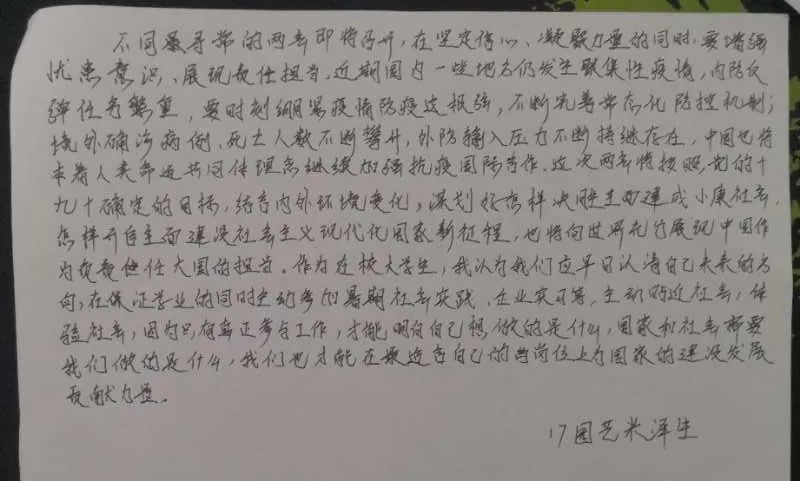 不同最寻常的两会即将召开,在坚定信心、凝聚力量的同时,要增强
忧患意识、展现责任担当。近期国内一些地方仍发生聚集性疫情,内防反
弹任务繁重,要时刻绷紧疫情防疫这根弦,不断完善常态化防控机制;
境外确诊病例、死亡人数不断攀升,外防输入压力不断持续存在,中国也将
本着人类命运共同体理念继续加强抗疫国际合作。这次两会将按照党的十
九大确定的目标,结合内外环境变化,谋划好怎样决胜全面建成小康社会,
怎样开启全面建设社会主义现代化国家新征程,也将向世界充分展现中国作
为负责任大国的担当。作为在校大学生,我认为我们应早日认清自己未来的方
向,在保证学业的同时主动参加暑期社会实践、企业实习等,主动贴近社会,体
验社会,因为只有真正参与工作,才能明白自己想做的是什么,国家和社会需要
我们做的是什么,我们也才能在最适合自己的岗位上为国家的建设发展
贡献力量。
17园艺米泽生